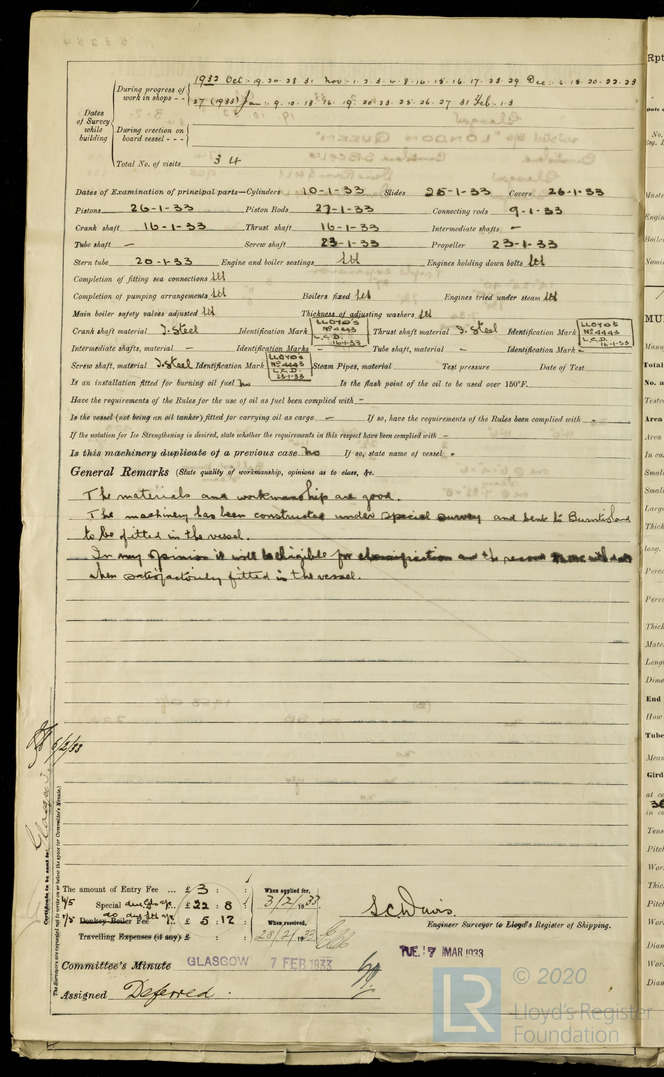 1932 Oct: 19. 20. 28. 31 Nov: 1. 2. 3. 4. 8. 14. 15. 16. 17. 23. 29 Dec: 6. 15. 20. 22. 23
During progress of work in shops - -
27 (1933) Jan: 9. 10. 13. 16. 19. 20. 23. 25. 26. 27. 31 Feb: 1. 3
Dates of Survey while building
During erection on board vessel - - -
Total No. of visits 34
Dates of Examination of principal parts—Cylinders 10-1-33 Slides 25-1-33 Covers 26-1-33
Pistons 26-1-33 Piston Rods 27-1-33 Connecting rods 9-1-33
Crank shaft 16-1-33 Thrust shaft 16-1-33 Intermediate shafts -
Tube shaft - Screw shaft 23-1-33 Propeller 23-1-33
Stern tube 20-1-33 Engine and boiler seatings Engines holding down bolts
Completion of fitting sea connections
Completion of pumping arrangements Boilers fixed Engines tried under steam
Main boiler safety valves adjusted Thickness of adjusting washers
Crank shaft material I. Steel Identification Mark LLOYD'S No 4443 L.C.D. 16-1-33 Thrust shaft material I. Steel Identification Mark LLOYD'S No 4443 L.C.D. 16-1-33
Intermediate shafts, material - Identification Marks - Tube shaft, material - Identification Mark -
Screw shaft, material I. Steel Identification Mark LLOYD'S No 4443 L.C.D. 23-1-33 Steam Pipes, material Test pressure Date of Test
Is an installation fitted for burning oil fuel no Is the flash point of the oil to be used over 150°F.
Have the requirements of the Rules for the use of oil as fuel been complied with -
Is the vessel (not being an oil tanker) fitted for carrying oil as cargo - If so, have the requirements of the Rules been complied with -
If the notation for Ice Strengthening is desired, state whether the requirements in this respect have been complied with -
Is this machinery duplicate of a previous case no If so, state name of vessel -
General Remarks (State quality of workmanship, opinions as to class, &c.
The materials and workmanship are good.
The machinery has been constructed under special survey and sent to Burntisland
to be fitted in the vessel.
In my opinion it will be eligible for classification and the record
when satisfactorily fitted in the vessel.
Certificate to be sent to
The Surveyors are requested not to write on or below the space for Committee's Minute.
The amount of Entry Fee ... £ 3 : : When applied for,
4/5 Special £ 22 : 8 : 3/2/1933
1/5 Donkey Boiler Fee £ 5 : 12 : When received,
Travelling Expenses (if any) £ : : 28/2/1933
Engineer Surveyor to Lloyd's Register of Shipping.
Committee's Minute GLASGOW 7 FEB 1933
TUE. 7 MAR 1933
Assigned Deferred.
© 2020
LR Lloyd's Register
Foundation